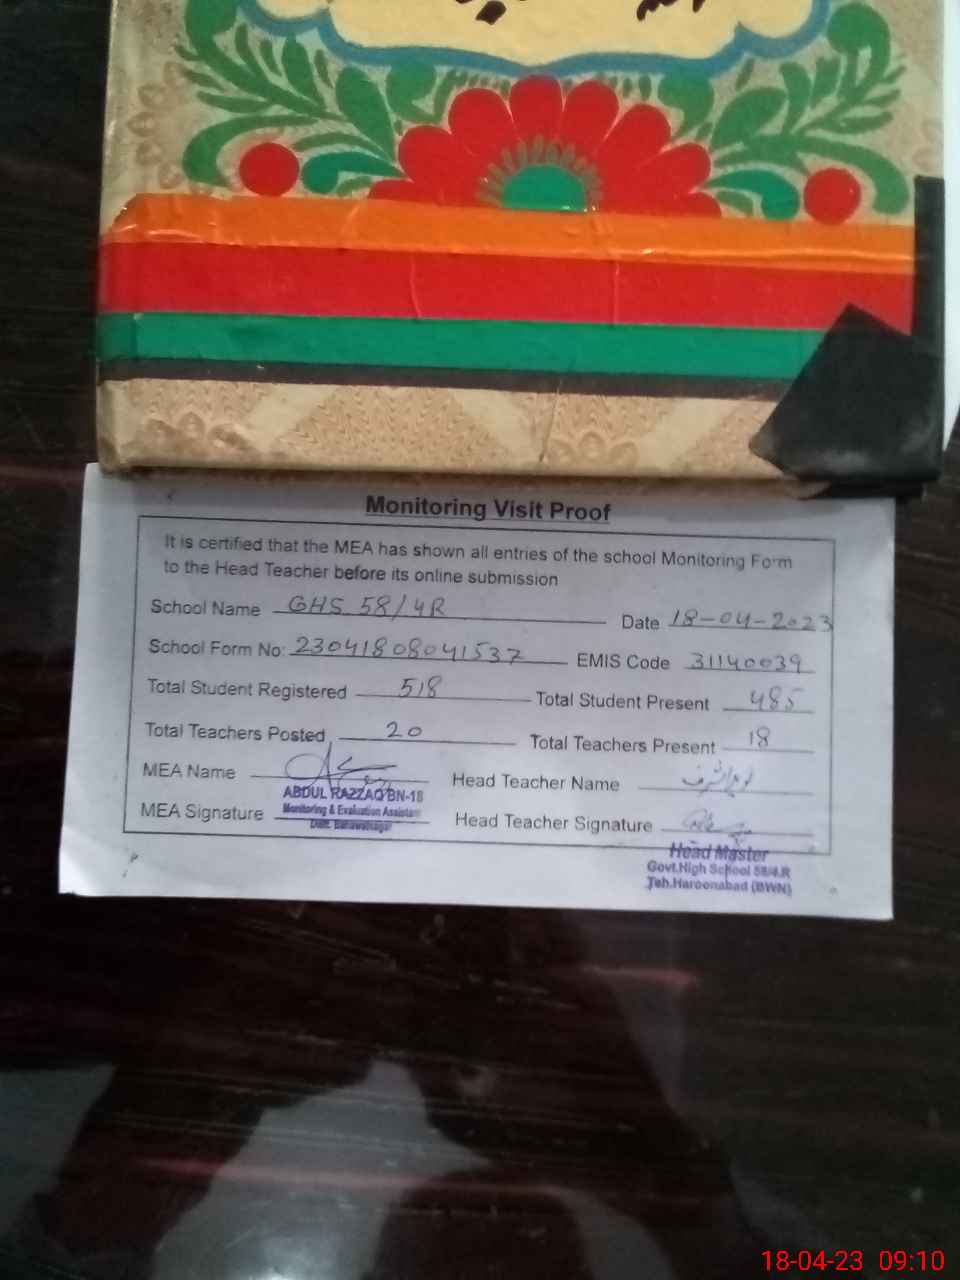 Monitoring Visit Proof
It is certified that the MEA has shown all entries of the school Monitoring Form
to the Head Teacher before its online submission
School Name GHS 58/4R Date 18-04-2023
School Form No: 23041808041537 EMIS Code 31140039
Total Student Registered 518 Total Student Present 485
Total Teachers Posted 20 Total Teachers Present 18
MEA Name Head Teacher Name
ABDUL RAZZAQ BN-18
Monitoring & Evaluation Assistant
Distt. Bahawalnagar
MEA Signature Head Teacher Signature
Head Master
Govt.High School 58/4.R
Teh.Haroonabad (BWN)
18-04-23 09:10